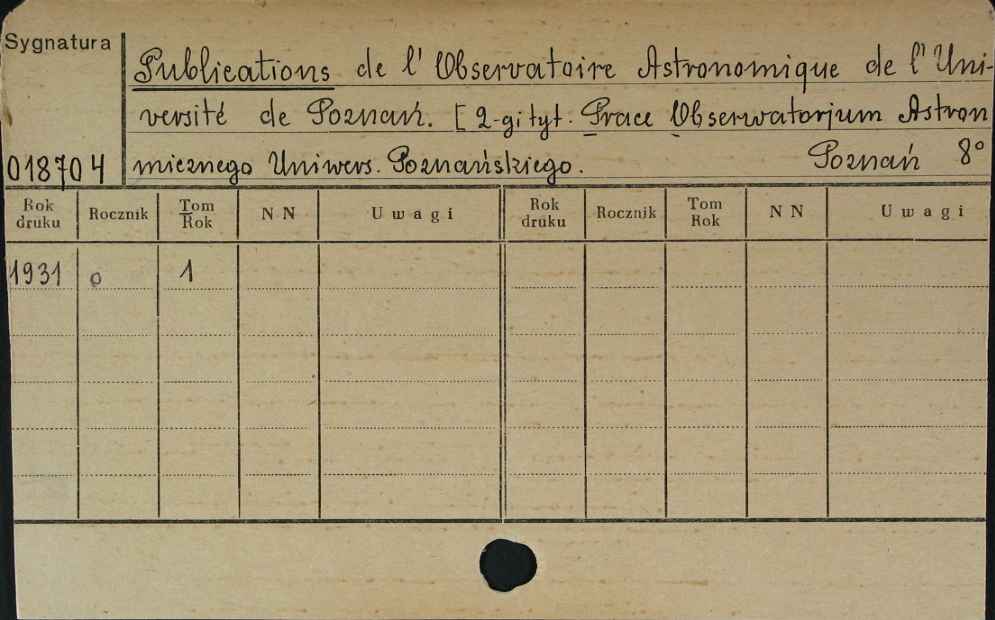 Sygnatura
Publications de l'Observatoire Astronomique de l'Uni-
versité de Poznań. [2-gi tyt: Prace Obserwatorjum Astron
018704 micznego Uniwers. Poznańskiego. Poznań 8°
Rok druku Rocznik Tom Rok NN Uwagi Rok druku Rocznik Tom Rok NN Uwagi
1931 o 1